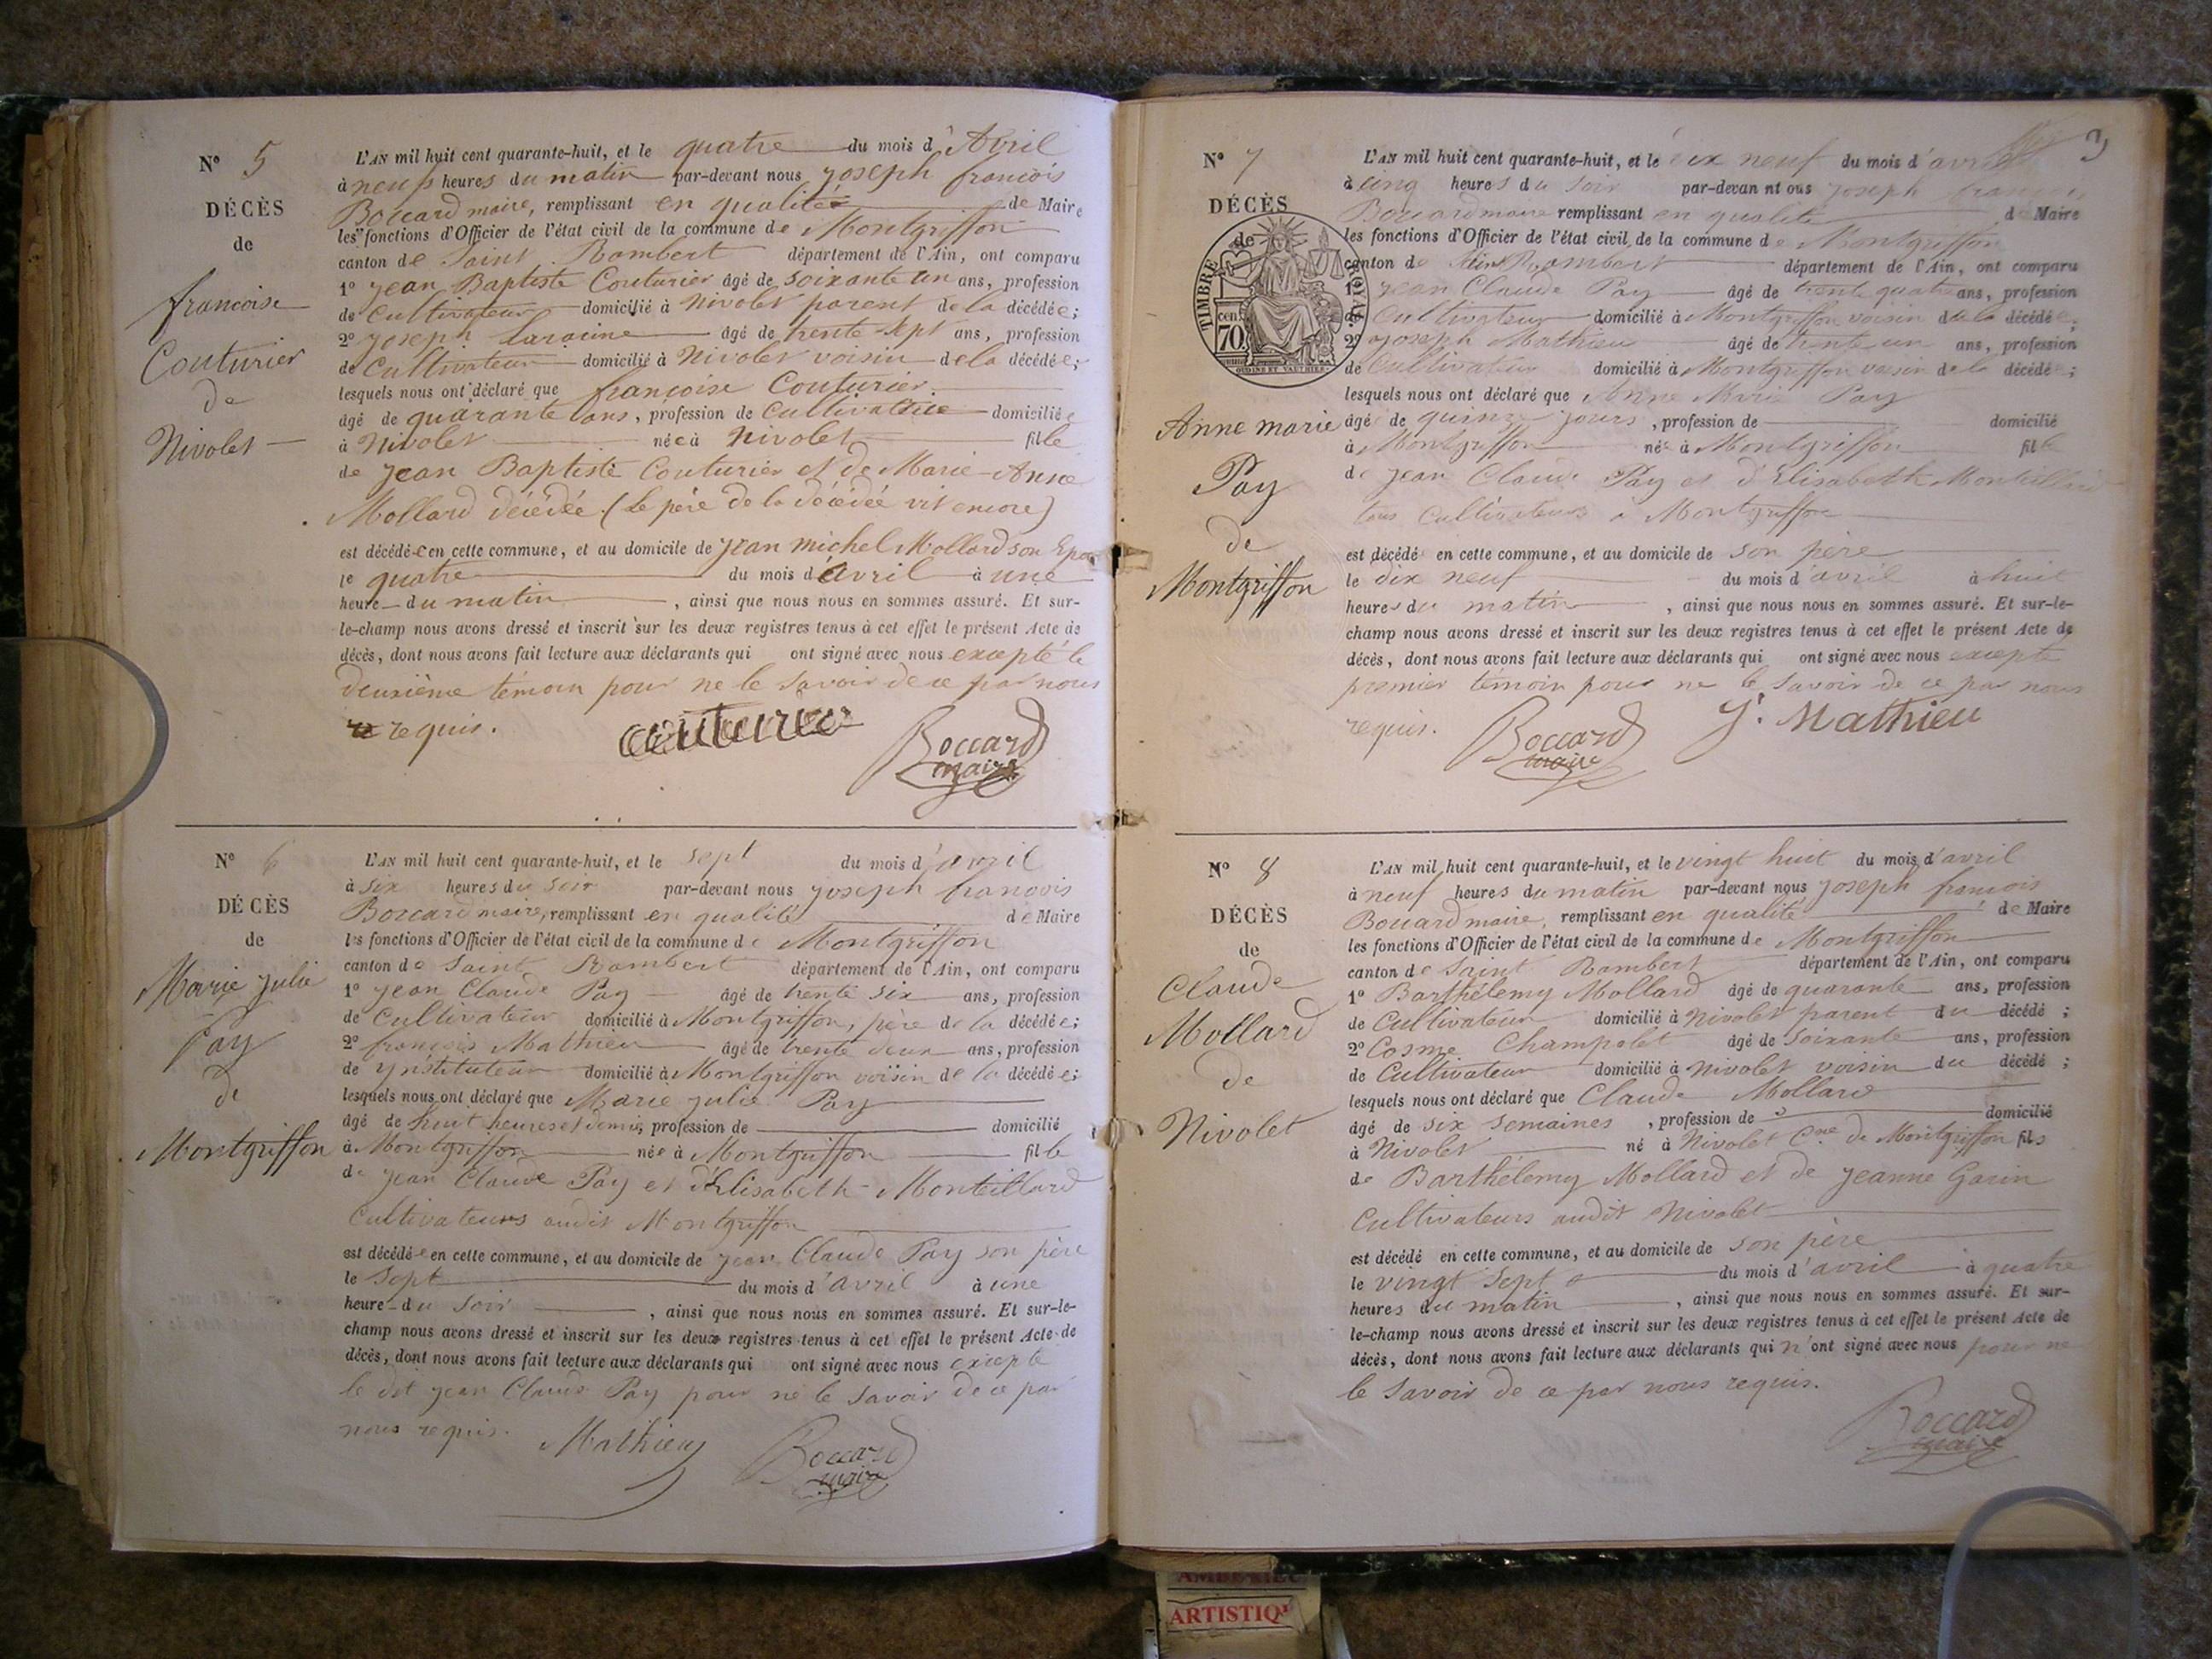 N° 5
DÉCÈS
de
françoise
Couturier
de
Nivolet
L'AN mil huit cent quarante-huit, et le quatre du mois d'Avril
à neuf heures du matin par-devant nous joseph françois
Boccard maire, remplissant en qualité de Maire
les fonctions d'Officier de l'état civil de la commune de Montgriffon
canton de Saint Rambert département de l'Ain, ont comparu
1° jean Baptiste Couturier âgé de soixante un ans, profession
de Cultivateur domicilié à Nivolet parent de la décédée;
2° joseph âgé de trente-sept ans, profession
de Cultivateur domicilié à Nivolet voisin de la décédée;
lesquels nous ont déclaré que françoise Couturier
âgé de quarante ans, profession de Cultivatrice domiciliée
à Nivolet née à Nivolet fille
de jean Baptiste Couturier et de Marie-Anne
Mollard décédée (Le père de la décédée vit encore)
est décédée en cette commune, et au domicile de jean Michel Mollard son Epoux
le quatre du mois d'Avril à une
heure du matin, ainsi que nous nous en sommes assuré. Et sur-
le-champ nous avons dressé et inscrit sur les deux registres tenus à cet effet le présent Acte de
décès, dont nous avons fait lecture aux déclarants qui ont signé avec nous excepté le
deuxième témoin pour ne le savoir de ce par nous
requis.
couturier
Boccard
maire
N° 6
DÉCÈS
de
Marie julie
Pay
de
Montgriffon
L'AN mil huit cent quarante-huit, et le sept du mois d'avril
à six heures du soir par-devant nous joseph françois
Boccard maire, remplissant en qualité de Maire
les fonctions d'Officier de l'état civil de la commune de Montgriffon
canton de Saint Rambert département de l'Ain, ont comparu
1° jean Claude Pay âgé de trente six ans, profession
de Cultivateur domicilié à Montgriffon, père de la décédée;
2° françois Mathieu âgé de trente deux ans, profession
de ynstituteur domicilié à Montgriffon voisin de la décédée;
lesquels nous ont déclaré que Marie julie Pay
âgé de huit heures et demie, profession de domicilié
à Montgriffon née à Montgriffon fille
de jean Claude Pay et d'Elisabeth Monteillard
Cultivateurs audit Montgriffon
est décédée en cette commune, et au domicile de jean Claude Pay son père
le sept du mois d'avril à une
heure du soir, ainsi que nous nous en sommes assuré. Et sur-le-
champ nous avons dressé et inscrit sur les deux registres tenus à cet effet le présent Acte de
décès, dont nous avons fait lecture aux déclarants qui ont signé avec nous excepté
le dit jean Claude Pay pour ne le savoir de ce par
nous requis.
Mathieu
Boccard
maire
3
N° 7
DÉCÈS
de
TIMBRE ROYAL
70 cen
OUDINE ET VAUTHIER
Anne marie
Pay
de
Montgriffon
L'AN mil huit cent quarante-huit, et le dix neuf du mois d'avril
à cinq heures du soir par-devan nt ous joseph françois
Boccard maire remplissant en qualité de Maire
les fonctions d'Officier de l'état civil de la commune de Montgriffon
canton de Saint Rambert département de l'Ain, ont comparu
1° jean Claude Pay âgé de trente quatre ans, profession
de Cultivateur domicilié à Montgriffon voisin de la décédée;
2° joseph Mathieu âgé de trente un ans, profession
de Cultivateur domicilié à Montgriffon voisin de la décédée;
lesquels nous ont déclaré que Anne Marie Pay
âgé de quinze jours, profession de domicilié
à Montgriffon née à Montgriffon fille
de jean Claude Pay et d'Elisabeth Monteillard
tous Cultivateurs à Montgriffon
est décédé en cette commune, et au domicile de son père
le dix neuf du mois d'avril à huit
heures du matin, ainsi que nous nous en sommes assuré. Et sur-le-
champ nous avons dressé et inscrit sur les deux registres tenus à cet effet le présent Acte de
décès, dont nous avons fait lecture aux déclarants qui ont signé avec nous excepté
premier témoin pour ne le savoir de ce par nous
requis.
Boccard
maire
J. Mathieu
N° 8
DÉCÈS
de
Claude
Mollard
de
Nivolet
L'AN mil huit cent quarante-huit, et le vingt huit du mois d'avril
à neuf heures du matin par-devant nous joseph françois
Boccard maire, remplissant en qualité de Maire
les fonctions d'Officier de l'état civil de la commune de Montgriffon
canton de Saint Rambert département de l'Ain, ont comparu
1° Barthélemy Mollard âgé de quarante ans, profession
de Cultivateur domicilié à Nivolet parent du décédé;
2° Cosme Champolet âgé de soixante ans, profession
de Cultivateur domicilié à Nivolet voisin du décédé;
lesquels nous ont déclaré que Claude Mollard
âgé de six semaines, profession de domicilié
à Nivolet né à Nivolet Cne de Montgriffon fils
de Barthélemy Mollard et de jeanne Garin
Cultivateurs audit Nivolet
est décédé en cette commune, et au domicile de son père
le vingt sept du mois d'avril à quatre
heures du matin, ainsi que nous nous en sommes assuré. Et sur-
le-champ nous avons dressé et inscrit sur les deux registres tenus à cet effet le présent Acte de
décès, dont nous avons fait lecture aux déclarants qui n'ont signé avec nous pour ne
le savoir de ce par nous requis.
Boccard
maire
ARTISTIQ